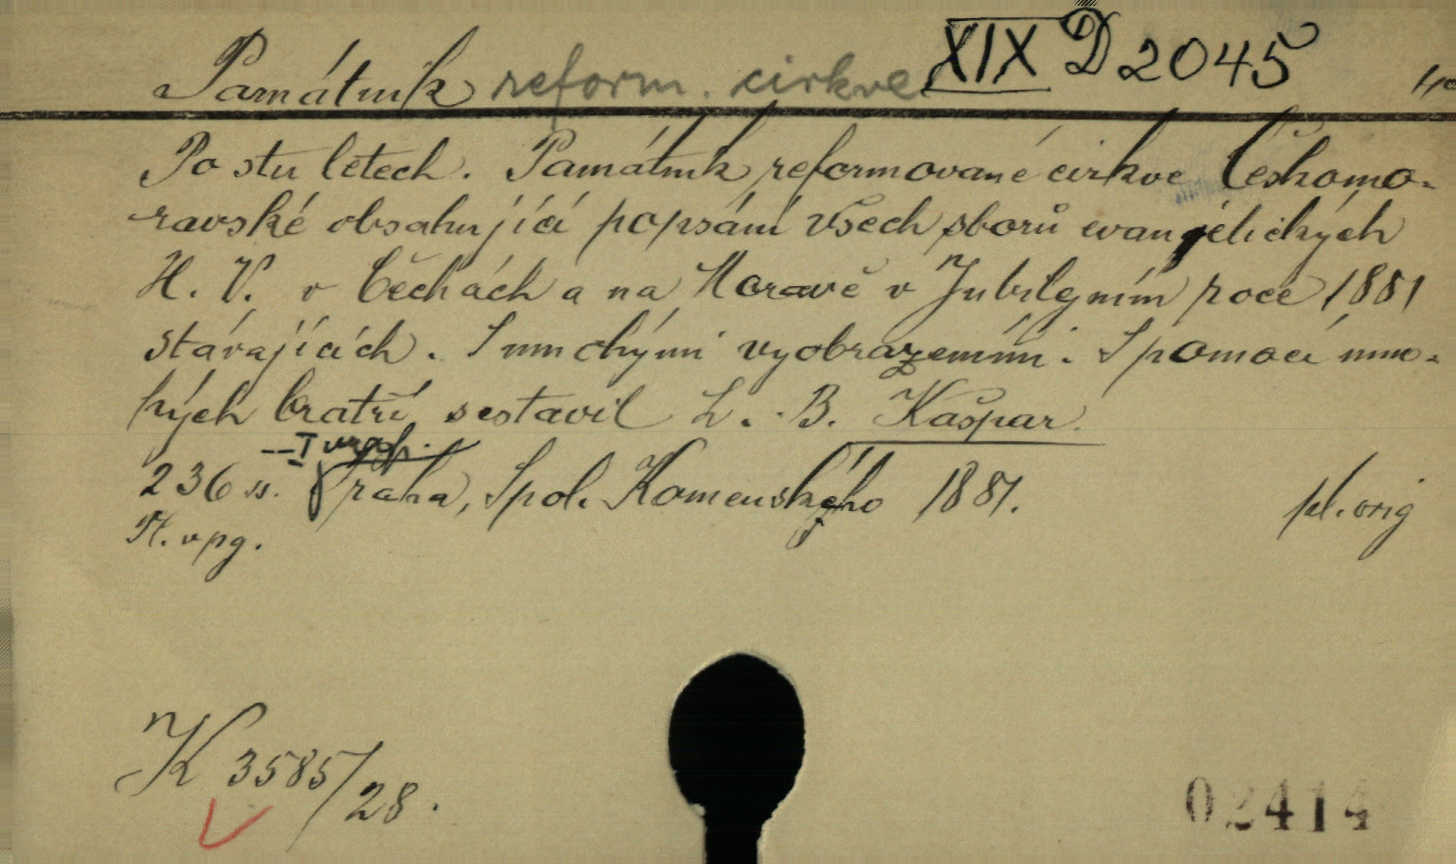 Památník reform. církve XIX D 2045
Po stu letech. Památník reformované církve Českomo-
ravské obsahující popsání všech sborů evanjelických
H. V. v Čechách a na Moravě v Jubilejním roce 1881
stávajících. S mnohými vyobrazeními. S pomocí mno-
hých bratří sestavil L. B. Kašpar.
236 s. Praha, Spol. Komenského 1881. pl. orig
Pl. v pg.
K 3585/28.
02414